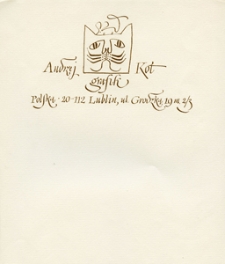 Andrzej Kot
grafik
Polska - 20-112 Lublin, ul. Grodzka 19 m 2/3